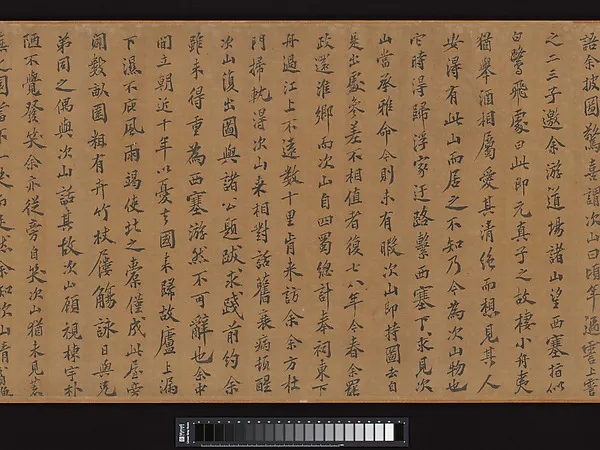 語余披圖驚喜謂次山曰頃年過霅上
之二三子邀余游道場諸山望西塞指似
白鷺飛處曰此即元真子之故棲小舟夷
猶舉酒相屬愛其清絶而想見其人
安得有此山而居之不知乃今為次山物也
它時得歸浮家迂路繫西塞下求見次
山當承雅命今則未有暇次山即持圖去自
是出處參差不相值者復七八年今春余罷
政還淮鄉而次山自四蜀總計奉祠東下
舟過江上不遠數十里肯来訪余余方杜
門掃軌得次山来相對話舊衰病頓醒
次山復出圖與諸公題跋求踐前約余
雖未得重為西塞游然不可辭也余
間立朝近十年以憂去國未歸故廬上漏
下濕不庇風雨謁使北之橐僅成此屋旁
闢數畝園粗有卉竹杖屨觴詠日與兄
弟同之偶與次山話其故次山顧視棟宇朴
陋不覺發笑余亦從旁自笑次山猶未見